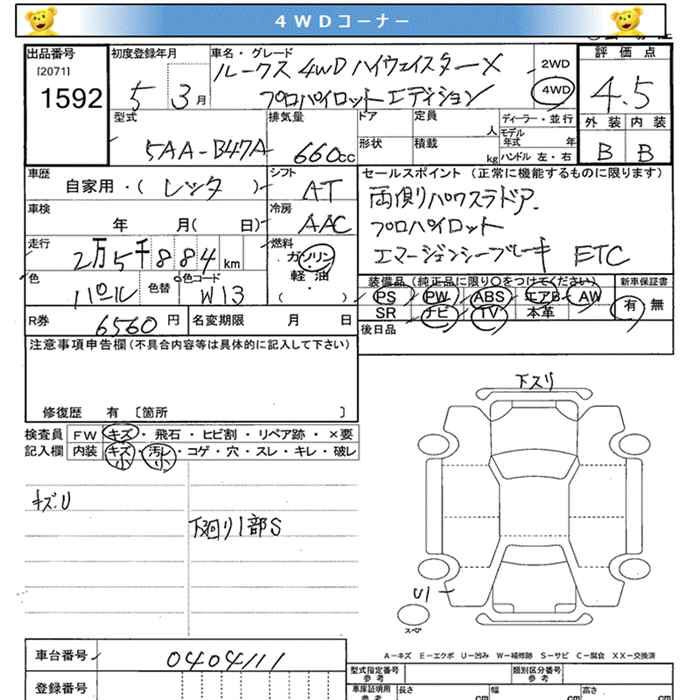 4WDコーナー
出品番号
[2071]
1592
初度登録年月
5 3月
車名・グレード
ルークス 4WD ハイウェイスターX
プロパイロットエディション
2WD
4WD
評価点
4.5
外装 内装
B B
型式
5AA-B47A
排気量
660cc
ドア
形状
定員
人
積載
kg
ディーラー・並行
モデル
年式 年
ハンドル 左・右
車歴
自家用・(レンタ)
シフト
AT
車検
年 月( 日)
冷房
AAC
走行
2万5千884km
燃料
ガソリン
軽油
( )
色
パール
色替
色コード
W13
セールスポイント (正常に機能するものに限ります)
両側パワスラドア.
プロパイロット
エマージェンシーブレーキ ETC
装備品 (純正品に限り○をつけてください)
PS PW ABS エアB AW
SR ナビ TV 本革
新車保証書
有 無
R券
6560円
名変期限 月 日
後日品
注意事項申告欄(不具合内容等は具体的に記入して下さい)
修復歴 有 [箇所 ]
検査員
記入欄
FW キズ・飛石・ヒビ割・リペア跡・×要
内装 キズ・汚レ・コゲ・穴・スレ・キレ・破レ
小 小
キズU
下廻り1部S
下スリ
U1
スペア
A－キズ E－エクボ U－凹み W－補修跡 S－サビ C－腐食 XX－交換済
車台番号
0404111
登録番号
型式指定番号
参考
類別区分番号
参考
車庫証明用
参考
長さ
cm
幅
cm
高さ
cm